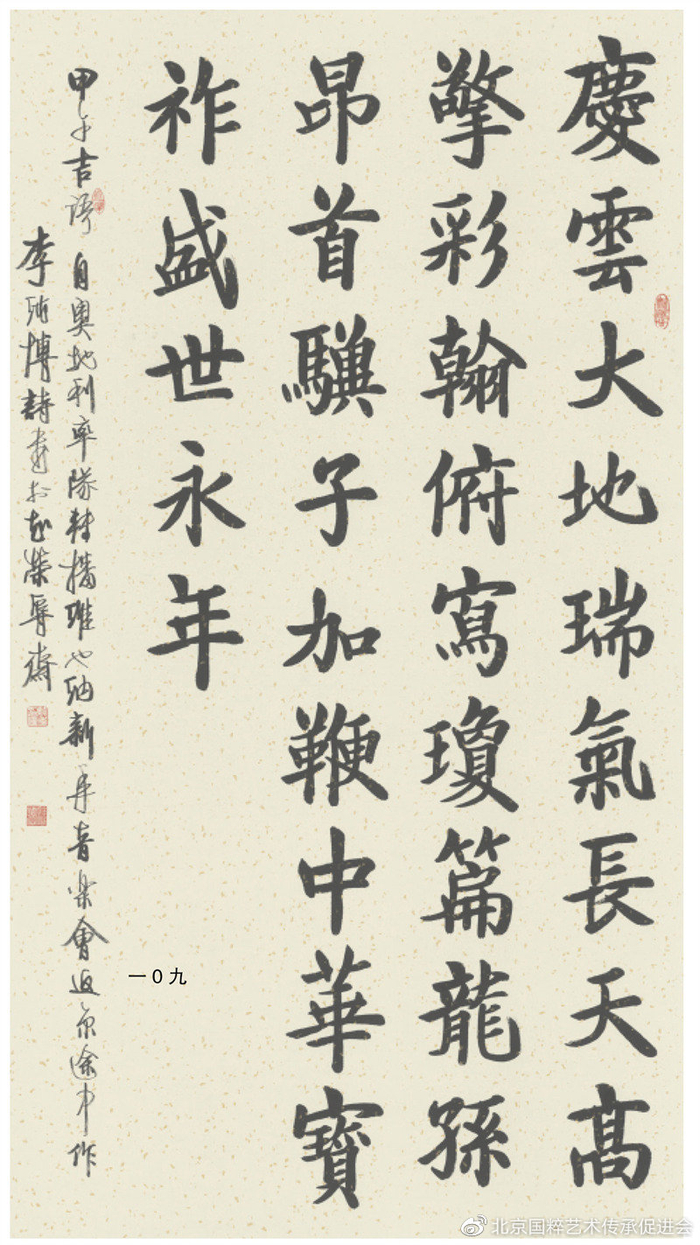 慶雲大地瑞氣長天高
擎彩翰俯寫瓊篇龍孫
昂首驥子加鞭中華寶
祚盛世永年
甲午吉語 自奧地利率隊轉播維也納新年音樂會返京途中作
李 博詩書於 榮辱齋
一0九
北京国粹艺术传承促进会